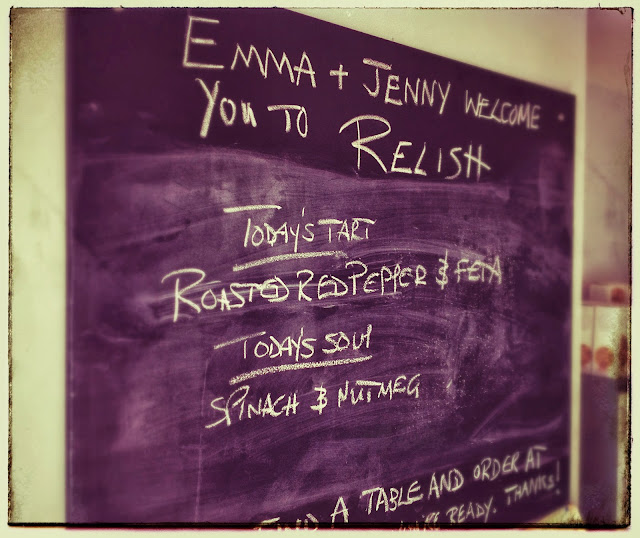 EMMA + JENNY WELCOME
YOU TO RELISH
TODAY'S TART
ROASTED RED PEPPER & FETA
TODAY'S SOUP
SPINACH & NUTMEG
FIND A TABLE AND ORDER AT
YOU'RE READY. THANKS!